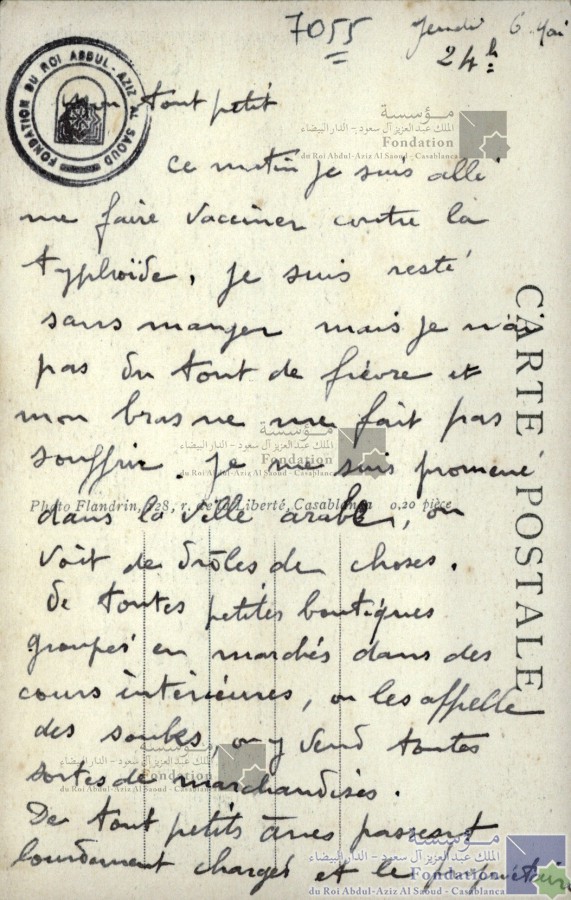 7055
Jeudi 6 Mai
24h
FONDATION DU ROI ABDUL-AZIZ AL SAOUD
mon tout petit
ce matin je suis allé
me faire vacciner contre la
typhoïde, je suis resté
sans manger mais je n'ai
pas du tout de fièvre et
mon bras ne me fait pas
souffrir. je me suis promené
Photo Flandrin, 228, r. de la Liberté, Casablanca 0,20 pièce
dans la ville arabe, on
voit de drôles de choses.
De toutes petites boutiques
groupés en marchés dans des
cours intérieures, on les appelle
des souks, on y vend toutes
sortes de marchandises.
De tout petits ânes passent
lourdement chargés et le propriétaire
CARTE POSTALE
مؤسسة
الملك عبدالعزيز آل سعود - الدار البيضاء
Fondation
du Roi Abdul-Aziz Al Saoud - Casablanca
مؤسسة
الملك عبدالعزيز آل سعود - الدار البيضاء
Fondation
du Roi Abdul-Aziz Al Saoud - Casablanca
مؤسسة
الملك عبدالعزيز آل سعود - الدار البيضاء
Fondation
du Roi Abdul-Aziz Al Saoud - Casablanca
مؤسسة
الملك عبدالعزيز آل سعود - الدار البيضاء
Fondation
du Roi Abdul-Aziz Al Saoud - Casablanca